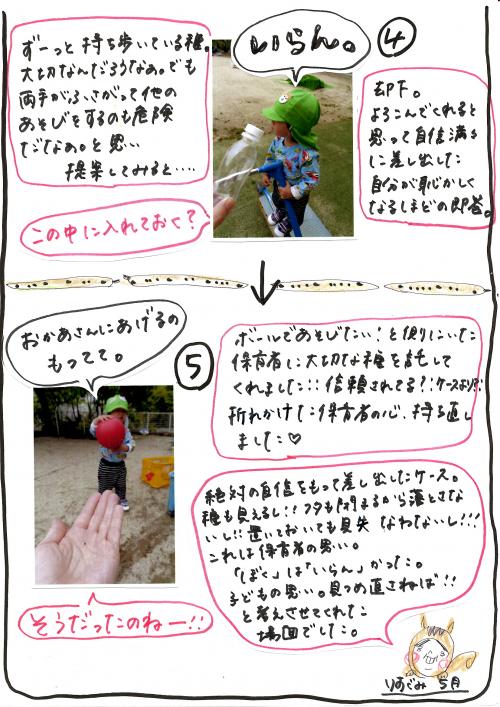 ずーっと持ち歩いている種。
大切なんだろうなぁ。でも
両手がふさがって他の
あそびをするのも危険
だなぁ。と思い
提案してみると・・・・
いらん。
④
却下。
よろこんでくれると
思って自信満々
に差し出した
自分が恥かしく
なるほどの即答。
この中に入れておく?
おかあさんにあげるの
もってて。
⑤
ボールであそびたい!と側にいた
保育者に大切な種を託して
くれました!!信頼されてる?!ケースより?!
折れかけた保育者の心、持ち直し
ました♡
絶対の自信をもって差し出したケース。
種も見えるし!!フタも閉まるから落とさな
いし!!置いておいても見失なわないし!!!
これは保育者の思い。
「ぼく」は「いらん」かった。
子どもの思い。見つめ直さねば!!
と考えさせてくれた
場面でした。
そうだったのねー!!
りすぐみ 5月